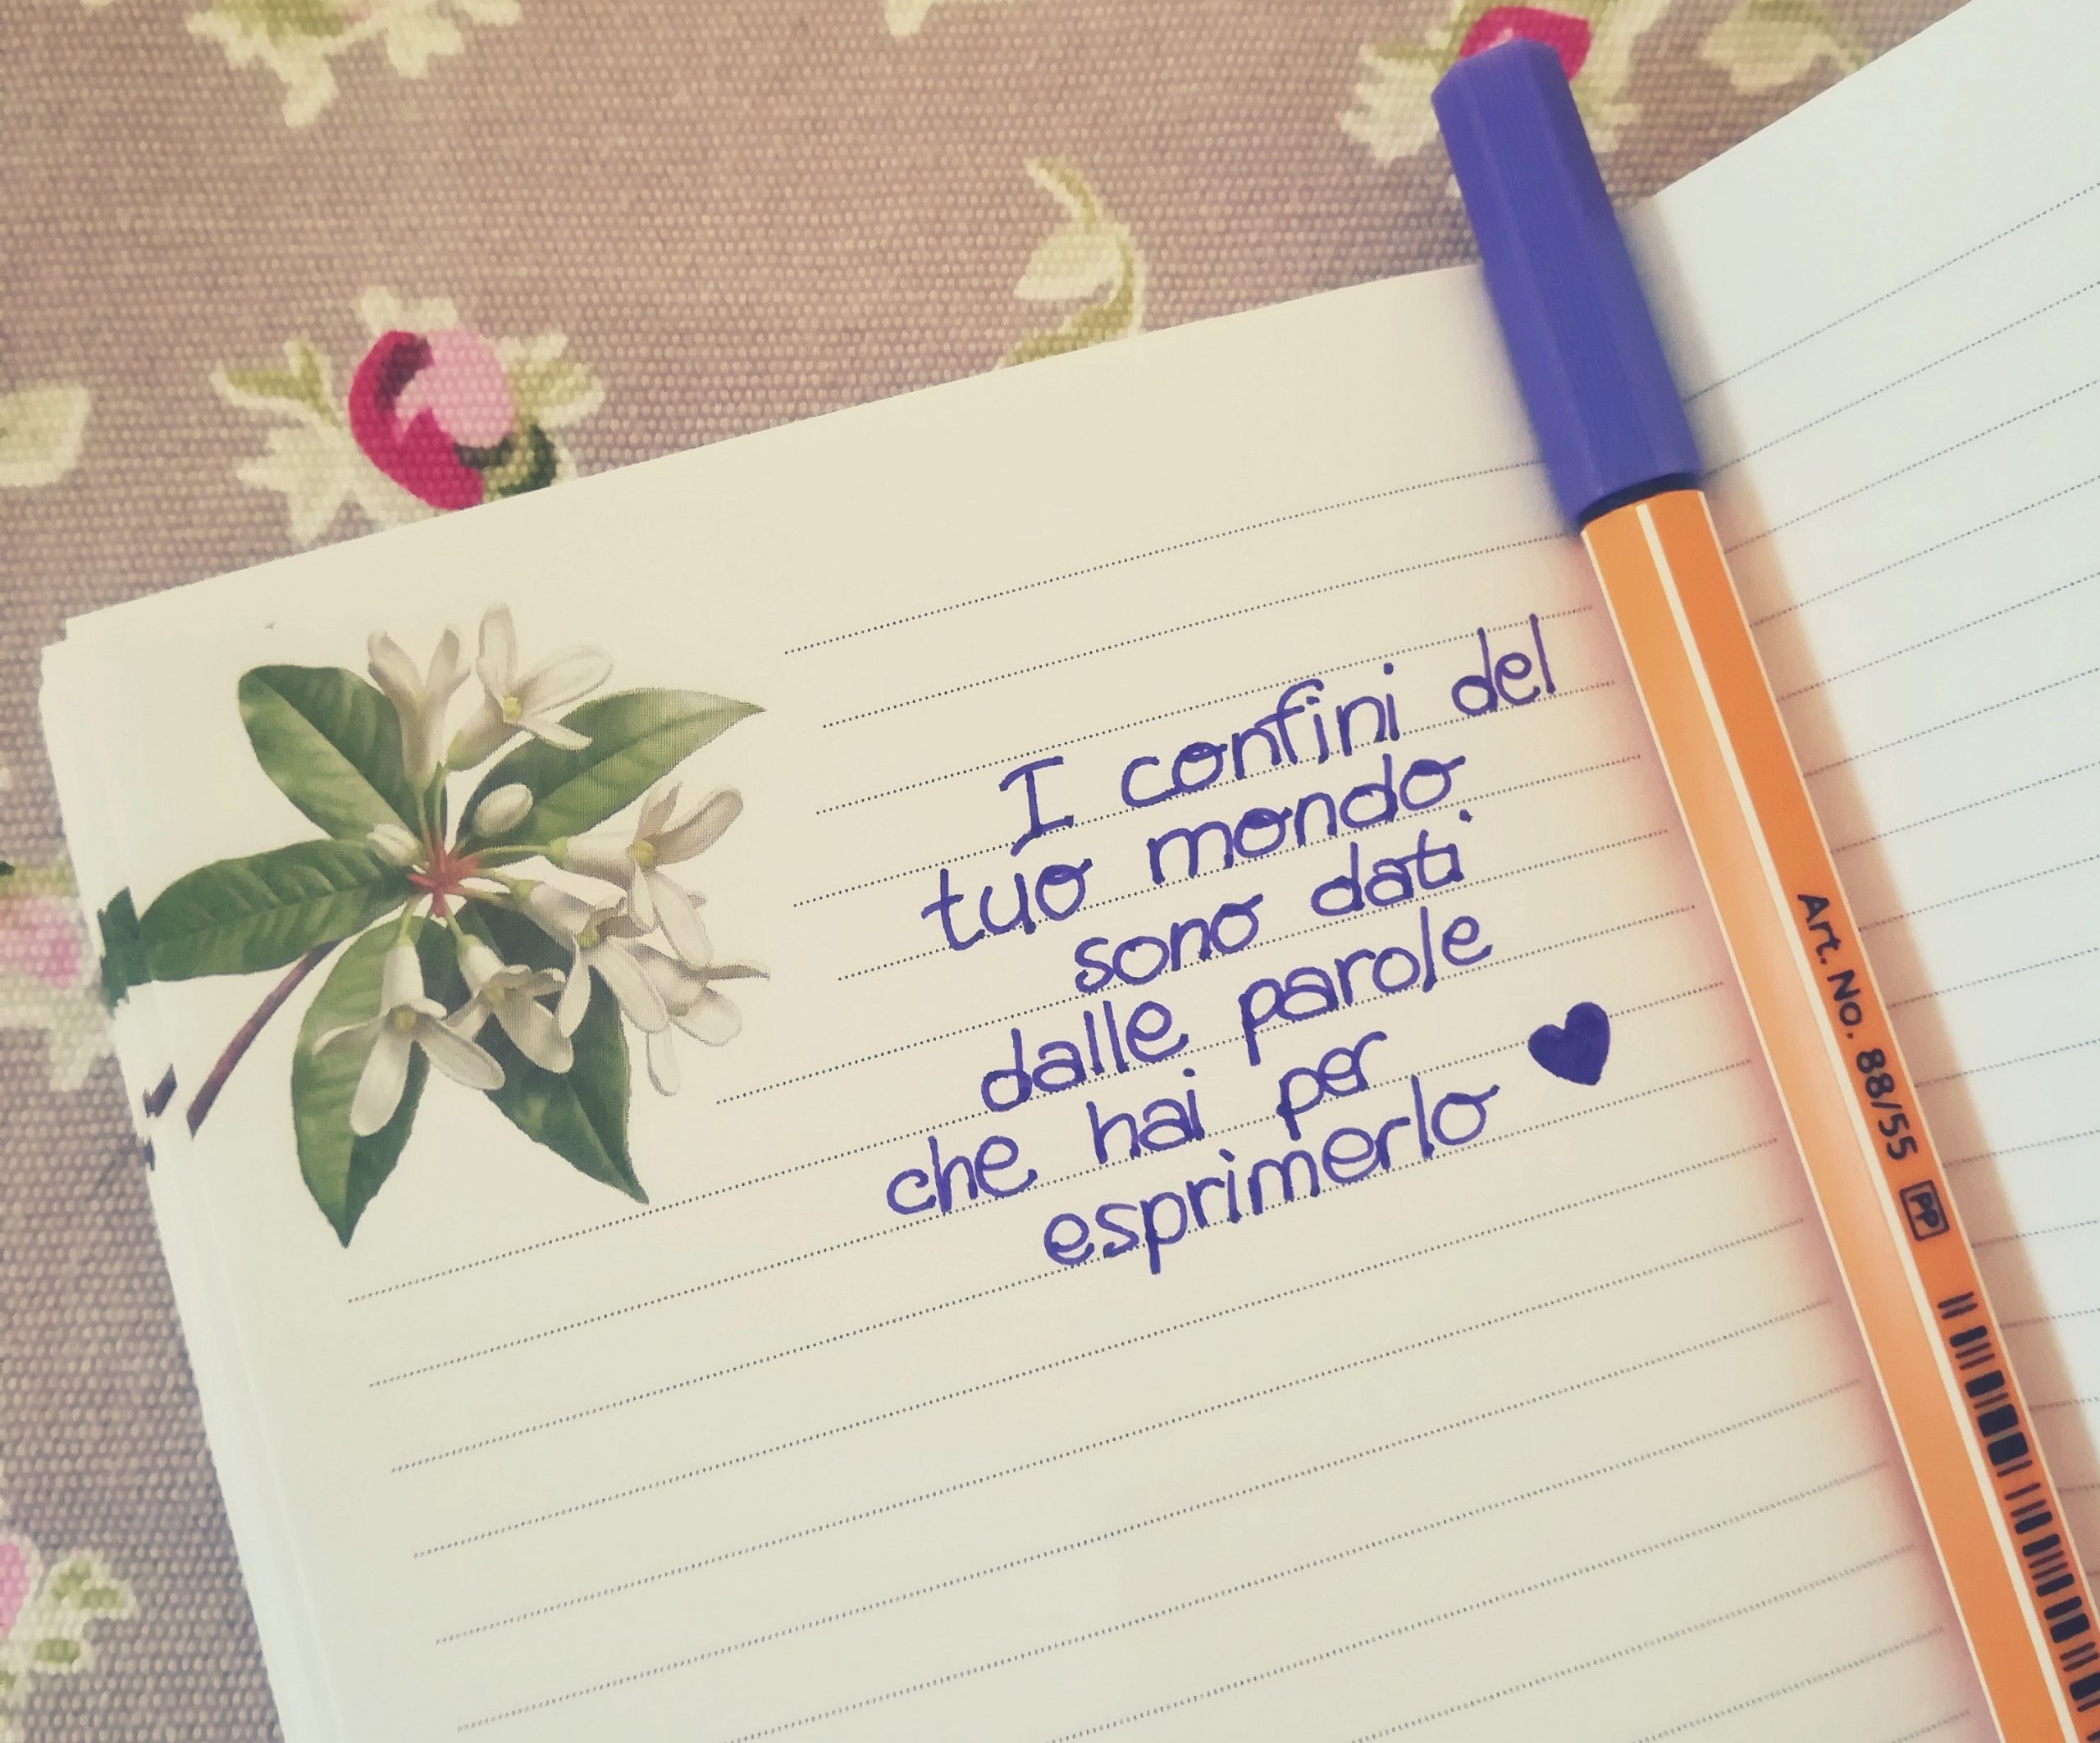 I confini del
tuo mondo
sono dati
dalle parole
che hai per
esprimerlo
Art. No. 88/55 PP